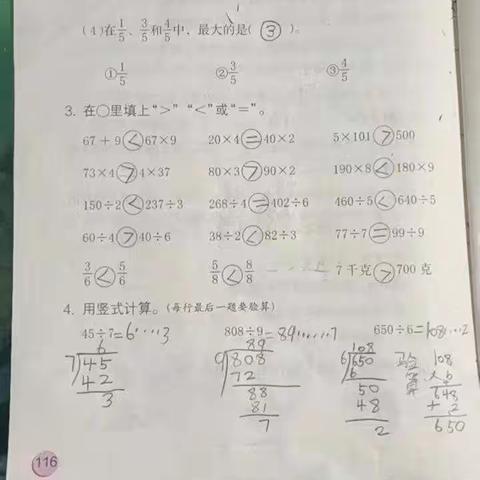 (4)在1/5、3/5和4/5中，最大的是(③)。
①1/5 ②3/5 ③4/5
3. 在○里填上“>”“<”或“=”。
67+9<67×9 20×4=40×2 5×101>500
73×4>4×37 80×3>90×2 190×8<180×9
150÷2<237÷3 268÷4=402÷6 460÷5<640÷5
60÷4>40÷6 38÷2<82÷3 77÷7=99÷9
3/6<5/6 5/8<8/8 7千克>700克
4. 用竖式计算。(每行最后一题要验算)
45÷7=6……3 808÷9=89……7 650÷6=108……2
6 89 108 验 108
7 45 9 808 6 650 算 ×6
42 72 6 648
3 88 50 +2
81 48 650
7 2
116